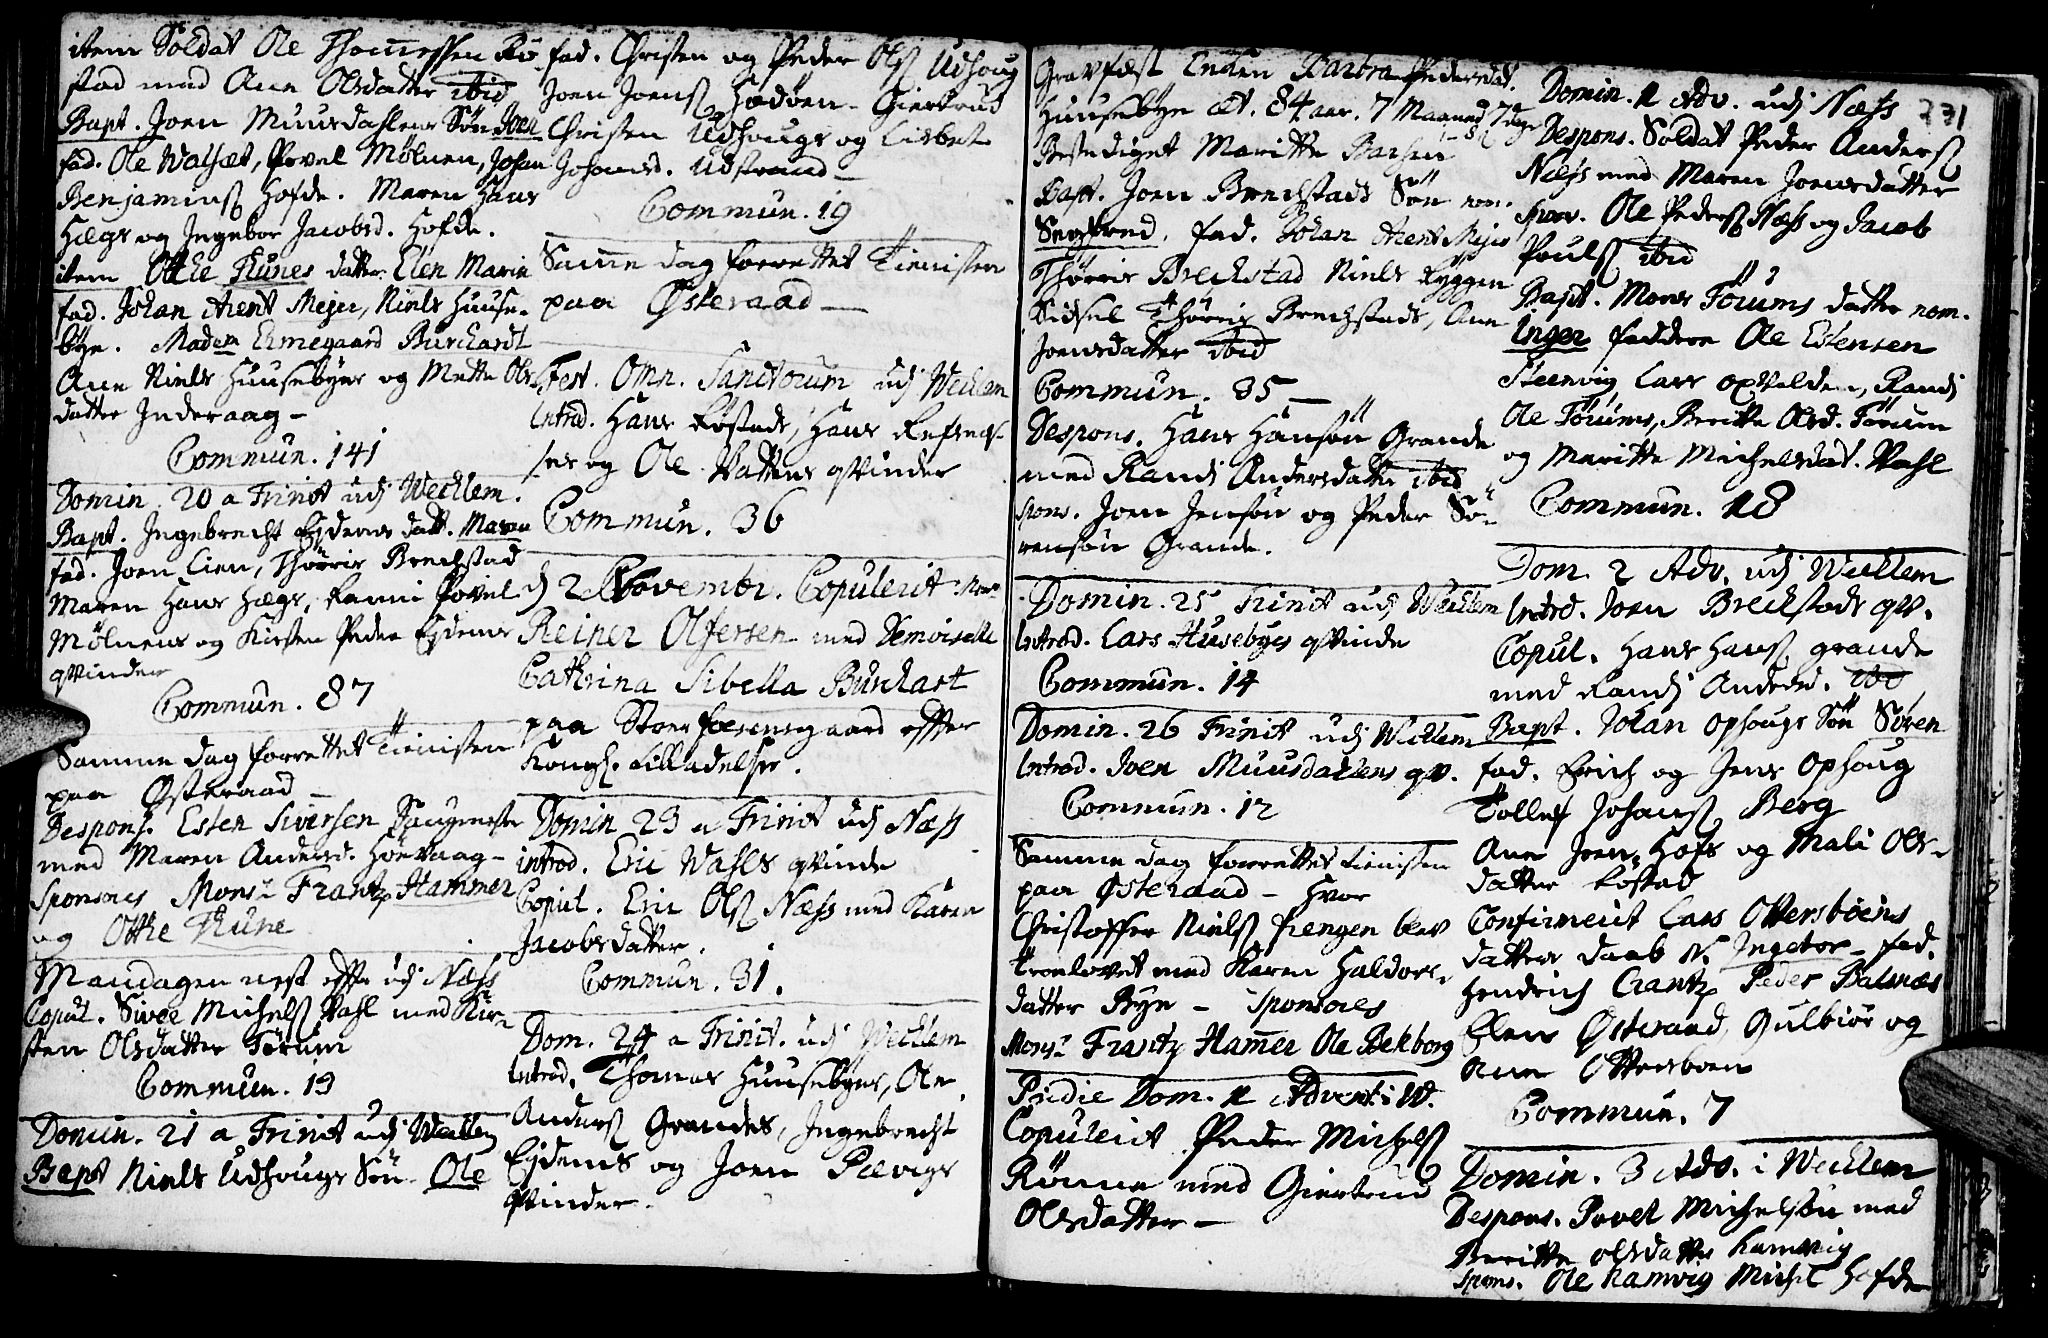 item Soldat Ole Thomessen Rö
stad med Ane Olsdatter ibid
Bapt. Joen Muusdahlens Sön Joen
fad. Ole Walsæt, Povel Mölnen, Johan
Benjamins Hofde. Maren Hans
Hægs og Ingebor Jacobsd. Hofde.
item Ottie Runes datter Elen Marie
fad. Johan Arent Mejer, Niels Huuse-
bÿe. Madem Ermegaard Burchardt
Ane Niels Huusebyes og Mette Ols
datter Inderaag -
Commun. 141
Domin. 20 a Trinit udj Wecklem.
Bapt. Ingebrecht Ejdens datt. Maren
fad. Joen Lien, Thörris Breckstad
Maren Hans Hægs, Povel
Mölnens og Kirsten Peder Ejdems
qvinder
Commun. 87
Samme dag forrettet Tienisten
paa Østeraad -
Despons. Esten Siversen
med Maren Andersd. Höevaag -
Sponsores Monsr Frantz Hammer
og Otthe Rune
Mandagen nest effter udj Næss
Copul. Sivee Michels Vahl med Kir-
sten Olsdatter Törum
Commun. 19
Domin. 21 a Trinit udj Wecklem
Bapt Niels Udhougs Sön Ole
fad. Christen og Peder Ols Udhoug
Joen Joens Hedöen - Giertrud
Christen Udhougs og Lisbet
Johansd. Udstrand -
Commun. 19
Samme dag forrettet Tienisten
paa Østeraad -
Fest. Omn. Sanctorum udj Wecklem
Introd. Hans Röstads, Hans Refsnes-
ses og Ole Vattens qvinder
Commun. 36
d 2 November. Copulerit Mons
Reiner Olfersen med Demoiselle
Cathrina Sibella Burchart
paa Stoer fosensgaard effter
Kongl. tilladelse.
Domin 23 a Trinit udj Næss
introd. Eric Wahls qvinde
Copul. Eric Ols Næss med Karen
Jacobsdatter.
Commun. 31.
Dom. 24 a Trinit. udj Wecklem
Introd. Thomas Huusebyes, Ole
Anders Grandes, Ingebrecht
Ejdems og Joen Pævigs
qvinder.
Gravfæst Enken Barbra Pedersdat.
Huusebye æt. 84 aar. 7 Maaned 7 dge
Beediget Maritte Barsen
Bapt. Joen Breckstads Sön nom.
fad. Johan Arent Mejer
Thörris Breckstad Niels Ryggen
Sidsel Thörris Breckstads, Ane
Joensdatter ibid
Commun. 35 -
Despons. Hans Hansön Grande
med Randi Andersdatter ibid
spons. Joen Jensön og Peder Sö-
rensön Grande.
Domin. 25 Trinit udj Wecklem
Introd. Lars Husebyes qvinde
Commun. 14
Domin. 26 Trinit udj Wecklem
Introd. Joen Muusdallens qv.
Commun. 12
Samme dag forrettet tienisten
paa Østeraad - hvor
Christoffer Niels blev
troelovet med Karen Haldors-
datter Bye - Sponsores
Monsr Frantz Hamer Ole Bekborg
Pridie Dom. 1 Advent: W.
Copulerit Peder Michels
Rönne med Giertrud
Olsdatter -
231
Domin. 1 Adv. udj Næss
Despons. Soldat Peder Anders
Næss med Maren Joensdatter
spons. Ole Peders Næss og Jacob
Pouls ibid
Bapt. Mons Törums datter nom.
Inger faddere Ole Estensen
Steenvig Lars opvolden, Randi
Ole Törums, Beritte Olsd. Törum
og Maritte Michelsdat. Vahl
Commun. 18
Dom. 2 Adv. udj Wecklem
Introd. Joen Breckstads qv.
Copul. Hans Hans grande
med Randj Andersd. ibid
Bapt. Johan Ophougs Sön Sören
fad. Erich og Jens Ophoug
Tollef Johans Berg
Ane Joen Hofs og Mali Ols-
datter
Confirmerit Lars Ottersböens
datters daab N. Ingebor - fad.
Hendrich Crantz Peder Balsnæs
Elen Østeraad Gulbiör og
Ane Ottersboen
Commun. 7
Domin. 3 Adv. i Wecklem
Despons. Povel Michelsön med
Beritte Olsdatter Ramvig
spons. Ole Ramvig Michel Hofde